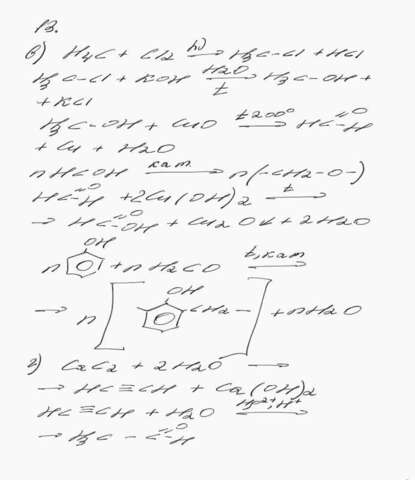 13.
в) H4C + Cl2 hν→ H3C-Cl + HCl
H3C-Cl + KOH H2O→t H3C-OH +
+ KCl
H3C-OH + CuO t 200°→ HC=O-H
+ Cu + H2O
nHCOH кат→ n(-CH2-O-)
HC=O-H + 2Cu(OH)2 t→
→ HC=O-OH + Cu2O↓ + 2H2O
OH
n + nH2CO t, кат→
→ n[ OH CH2- ] + nH2O
г) CaC2 + 2H2O →
→ HC≡CH + Ca(OH)2
HC≡CH + H2O Hg2+, H+→
→ H3C-C=O-H